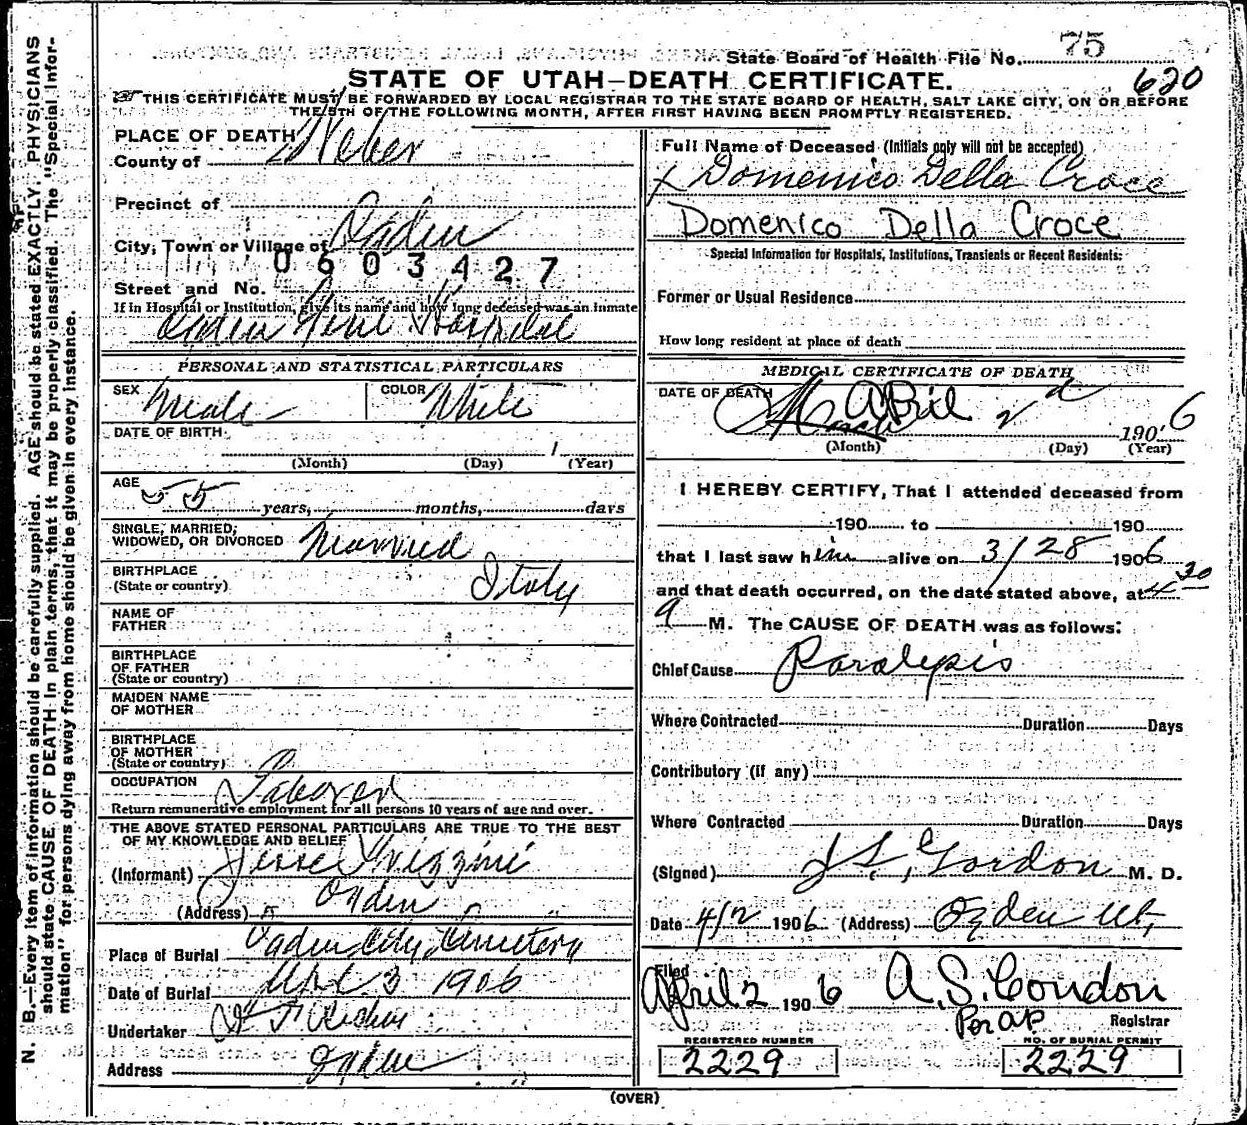 State Board of Health File No. 75
620
STATE OF UTAH—DEATH CERTIFICATE.
THIS CERTIFICATE MUST BE FORWARDED BY LOCAL REGISTRAR TO THE STATE BOARD OF HEALTH, SALT LAKE CITY, ON OR BEFORE
THE 5TH OF THE FOLLOWING MONTH, AFTER FIRST HAVING BEEN PROMPTLY REGISTERED.
N. B.—Every item of information should be carefully supplied. AGE should be stated EXACTLY. PHYSICIANS
should state CAUSE OF DEATH in plain terms, that it may be properly classified. The "Special Infor-
mation" for persons dying away from home should be given in every instance.
PLACE OF DEATH
County of Weber
Precinct of
City, Town or Village of Ogden
0603427
Street and No.
If in Hospital or Institution, give its name and how long deceased was an inmate
Ogden Genl Hospital
PERSONAL AND STATISTICAL PARTICULARS
SEX Male COLOR White
DATE OF BIRTH
1
(Month) (Day) (Year)
AGE
55 years, months, days
SINGLE, MARRIED,
WIDOWED, OR DIVORCED Married
BIRTHPLACE
(State or country) Italy
NAME OF
FATHER
BIRTHPLACE
OF FATHER
(State or country)
MAIDEN NAME
OF MOTHER
BIRTHPLACE
OF MOTHER
(State or country)
OCCUPATION Laborer
Return remunerative employment for all persons 10 years of age and over.
THE ABOVE STATED PERSONAL PARTICULARS ARE TRUE TO THE BEST
OF MY KNOWLEDGE AND BELIEF
(Informant) Jesse
(Address) Ogden
Place of Burial Ogden City Cemetery
Date of Burial Apl 3 1906
Undertaker
Address Ogden
Full Name of Deceased (Initials only will not be accepted)
x Domenico Della Croce
Domenico Della Croce
Special Information for Hospitals, Institutions, Transients or Recent Residents:
Former or Usual Residence
How long resident at place of death
MEDICAL CERTIFICATE OF DEATH
DATE OF DEATH
March April 2d 1906
(Month) (Day) (Year)
I HEREBY CERTIFY, That I attended deceased from
190 to 190
that I last saw him alive on 3/28 1906
and that death occurred, on the date stated above, at 4 30
a M. The CAUSE OF DEATH was as follows:
Chief Cause Paralysis
Where Contracted Duration Days
Contributory (if any)
Where Contracted Duration Days
(Signed) Gordon M. D.
Date 4/2 1906 (Address) Ogden Ut,
Filed
April 2 1906 A. S. Condon
Per AP Registrar
REGISTERED NUMBER NO. OF BURIAL PERMIT
2229 2229
(OVER)